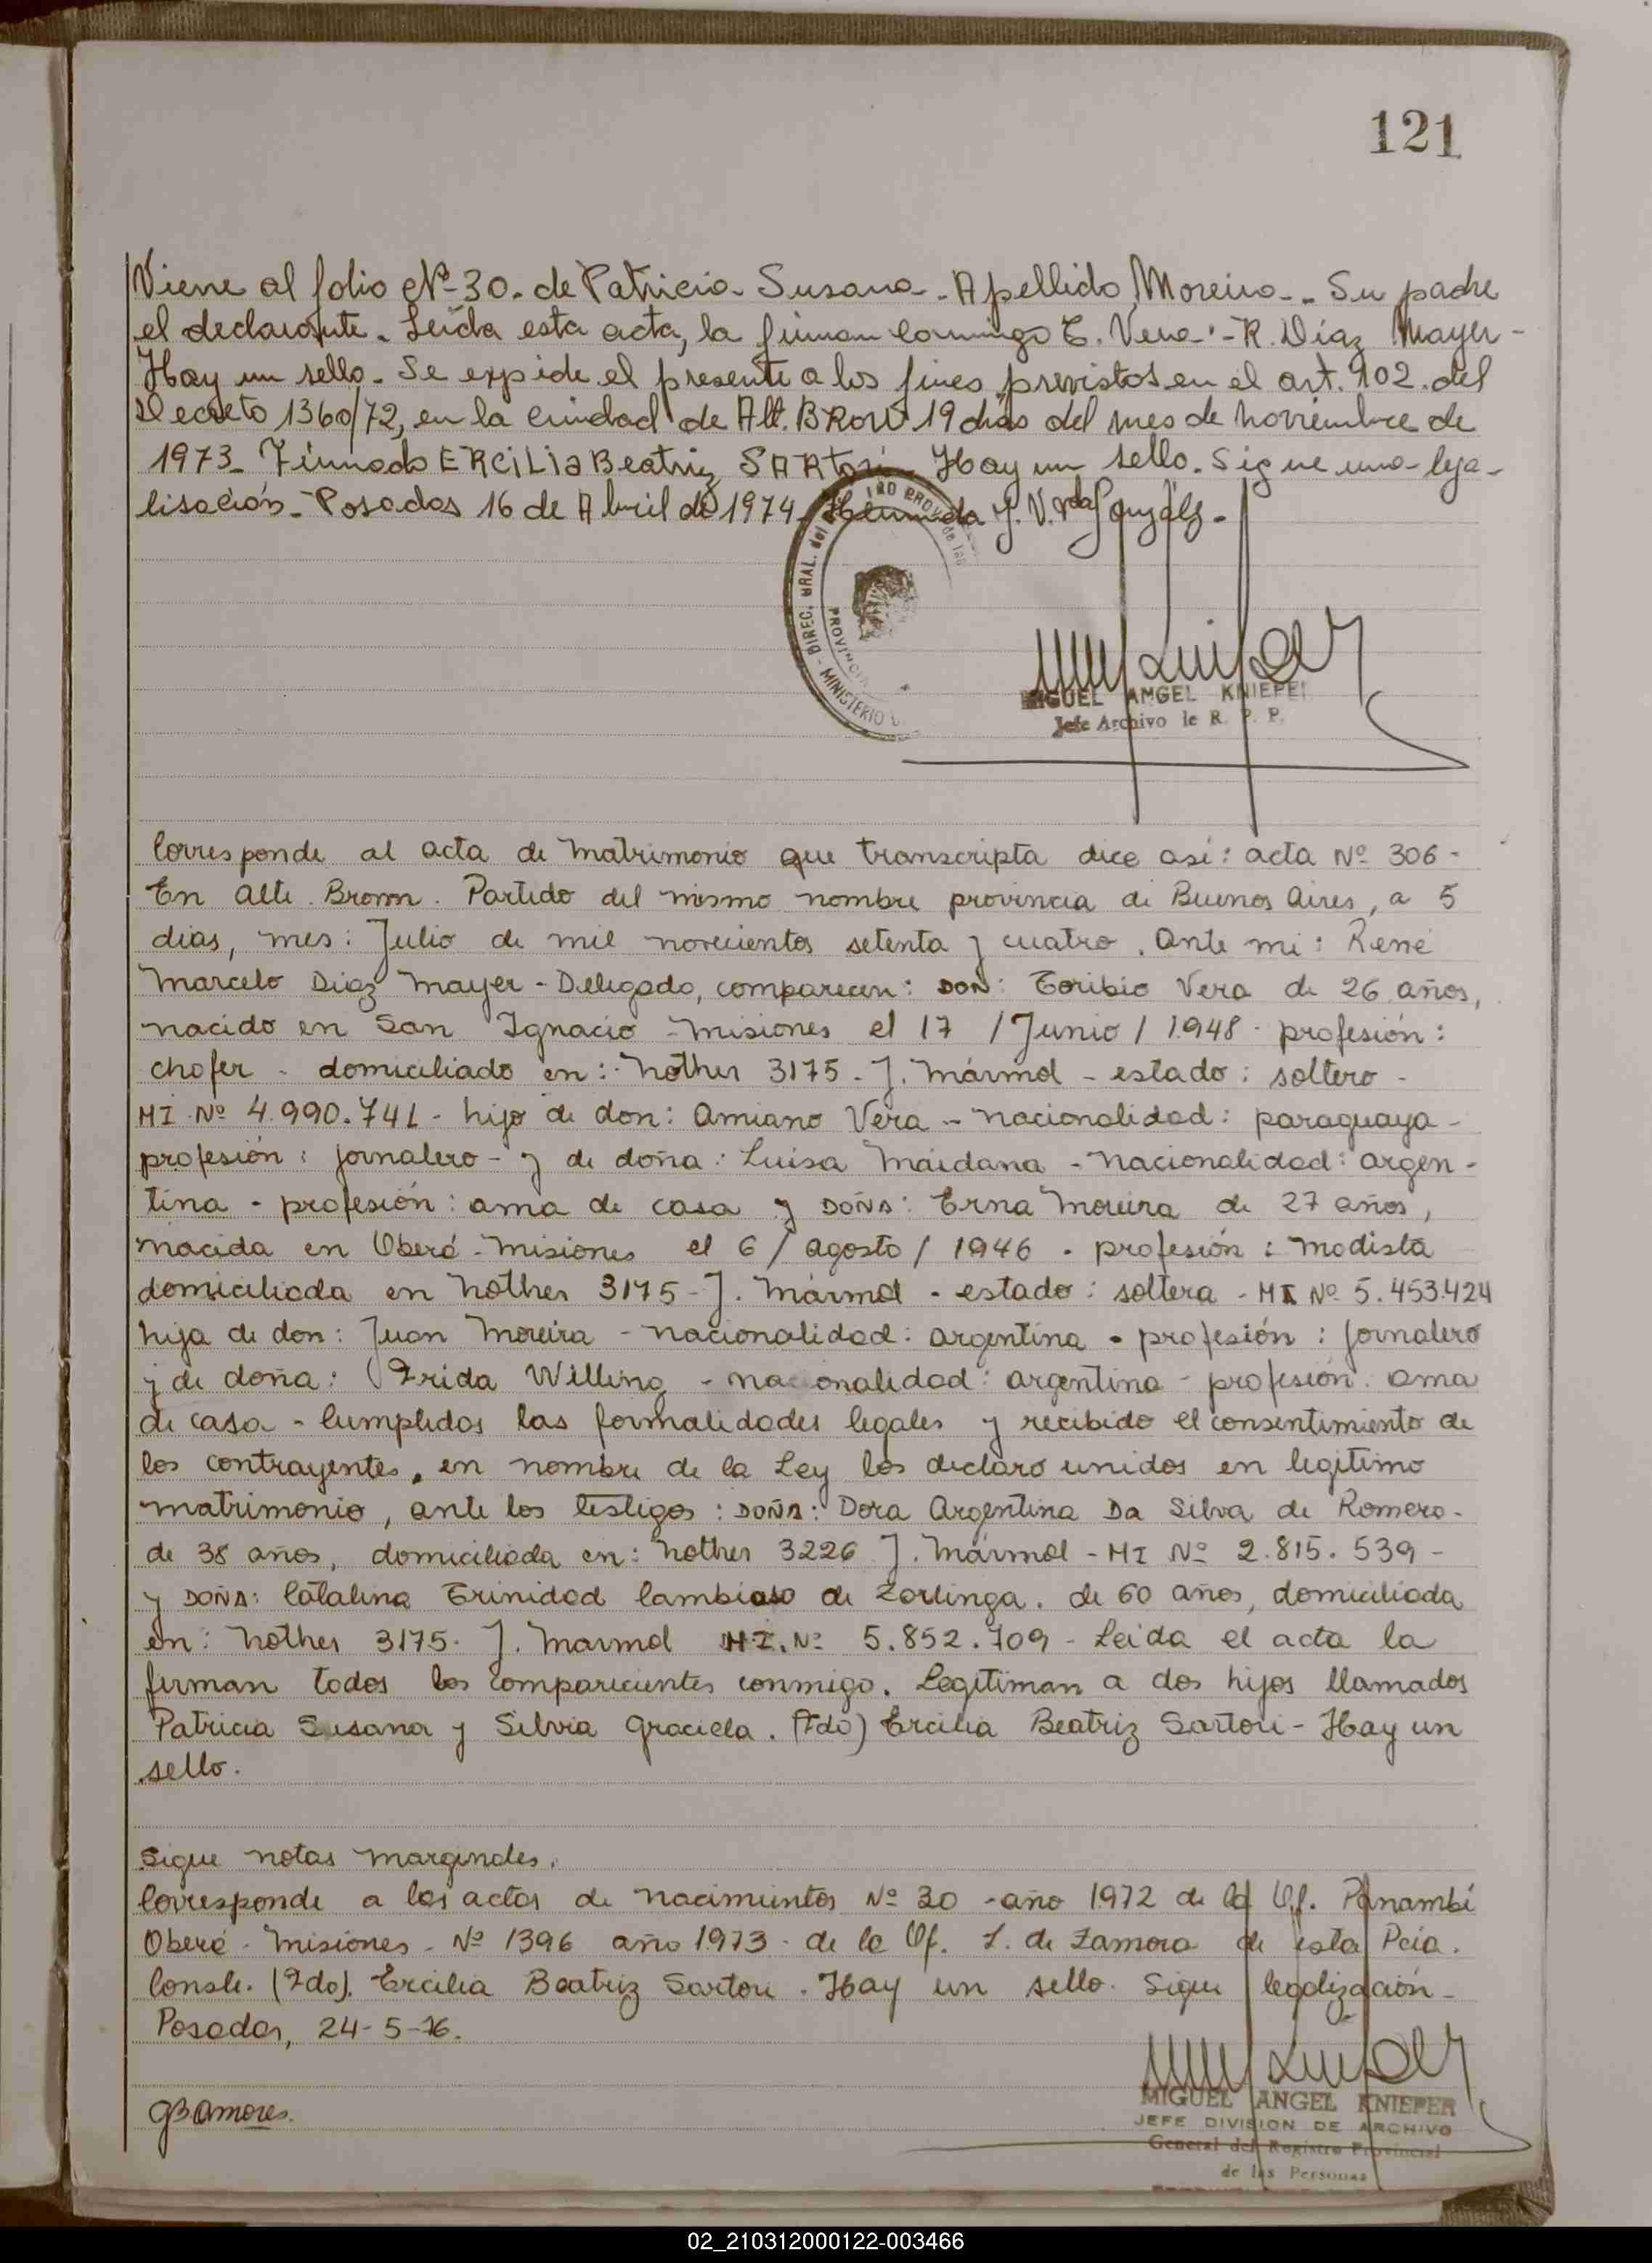 121
Viene al folio Nº 30. de Patricia Susana. Apellido Moreira. Su padre
el declarante. Leída esta acta, la firman Domingo T. Vera - R. Díaz Mayer -
Hay un sello. Se expide el presente a los fines previstos en el art. 102. del
Decreto 1360/72, en la ciudad de Alt. BROW 19 días del mes de noviembre de
1973. Firmado ERCiLia Beatriz SARTori. Hay un sello. Sigue una lega-
lisación. Posadas 16 de Abril de 1974. J. V. Vda González.
DIREC. GRAL. del
MINISTERIO
MIGUEL ANGEL KNIEPE
Jefe Archivo de R. P. P.
Corresponde al acta de matrimonio que transcripta dice así: acta Nº 306 -
En Alte. Brown. Partido del mismo nombre provincia de Buenos Aires, a 5
dias, mes: Julio de mil novecientos setenta y cuatro. Ante mi: René
Marcelo Diaz Mayer - Delegado, comparecen: DON: Toribio Vera de 26 años,
nacido en San Ignacio - Misiones el 17 / Junio / 1948 - profesión:
chofer - domiciliado en: Nother 3175. J. Mármol - estado: soltero -
MI Nº 4.990.741 - hijo de don: Amiano Vera - nacionalidad: paraguaya -
profesión: jornalero - y de doña: Luisa Maidana - nacionalidad: argen-
tina - profesión: ama de casa y DOÑA: Erna Moreira de 27 años,
nacida en Oberá - Misiones el 6 / Agosto / 1946 - profesión: modista
domiciliada en Nother 3175 - J. Mármol - estado: soltera - MI Nº 5.453.424
hija de don: Juan Moreira - nacionalidad: argentina - profesión: jornalero
y de doña: Frida Willing - nacionalidad: argentina - profesión: ama
de casa - Cumplidas las formalidades legales y recibido el consentimiento de
los contrayentes, en nombre de la Ley los declaro unidos en legítimo
matrimonio, ante los testigos: DOÑA: Dora Argentina Da Silva de Romero -
de 38 años, domiciliada en: Nother 3226 J. Mármol - MI Nº 2.815.539 -
y DOÑA: Catalina Trinidad Cambiaso de Zorlinga. de 60 años, domiciliada
en: Nother 3175. J. Marmol M.I. Nº 5.852.709 - Leida el acta la
firman todos los comparecientes conmigo. Legitiman a dos hijos llamados
Patricia Susana y Silvia Graciela. (Fdo) Ercilia Beatriz Sartori - Hay un
sello.
Sigue notas marginales.
Corresponde a las actas de nacimientos Nº 30 - año 1972 de la Of. Panambí
Oberá - Misiones - Nº 1396 año 1973 - de la Of. L. de Zamora de esta Pcia.
Conste. (Fdo). Ercilia Beatriz Sartori. Hay un sello. Sigue legalización -
Posadas, 24-5-76.
GBAmores.
MIGUEL ANGEL KNIEPER
JEFE DIVISION DE ARCHIVO
General del Registro Provincial
de las Personas
02_210312000122-003466